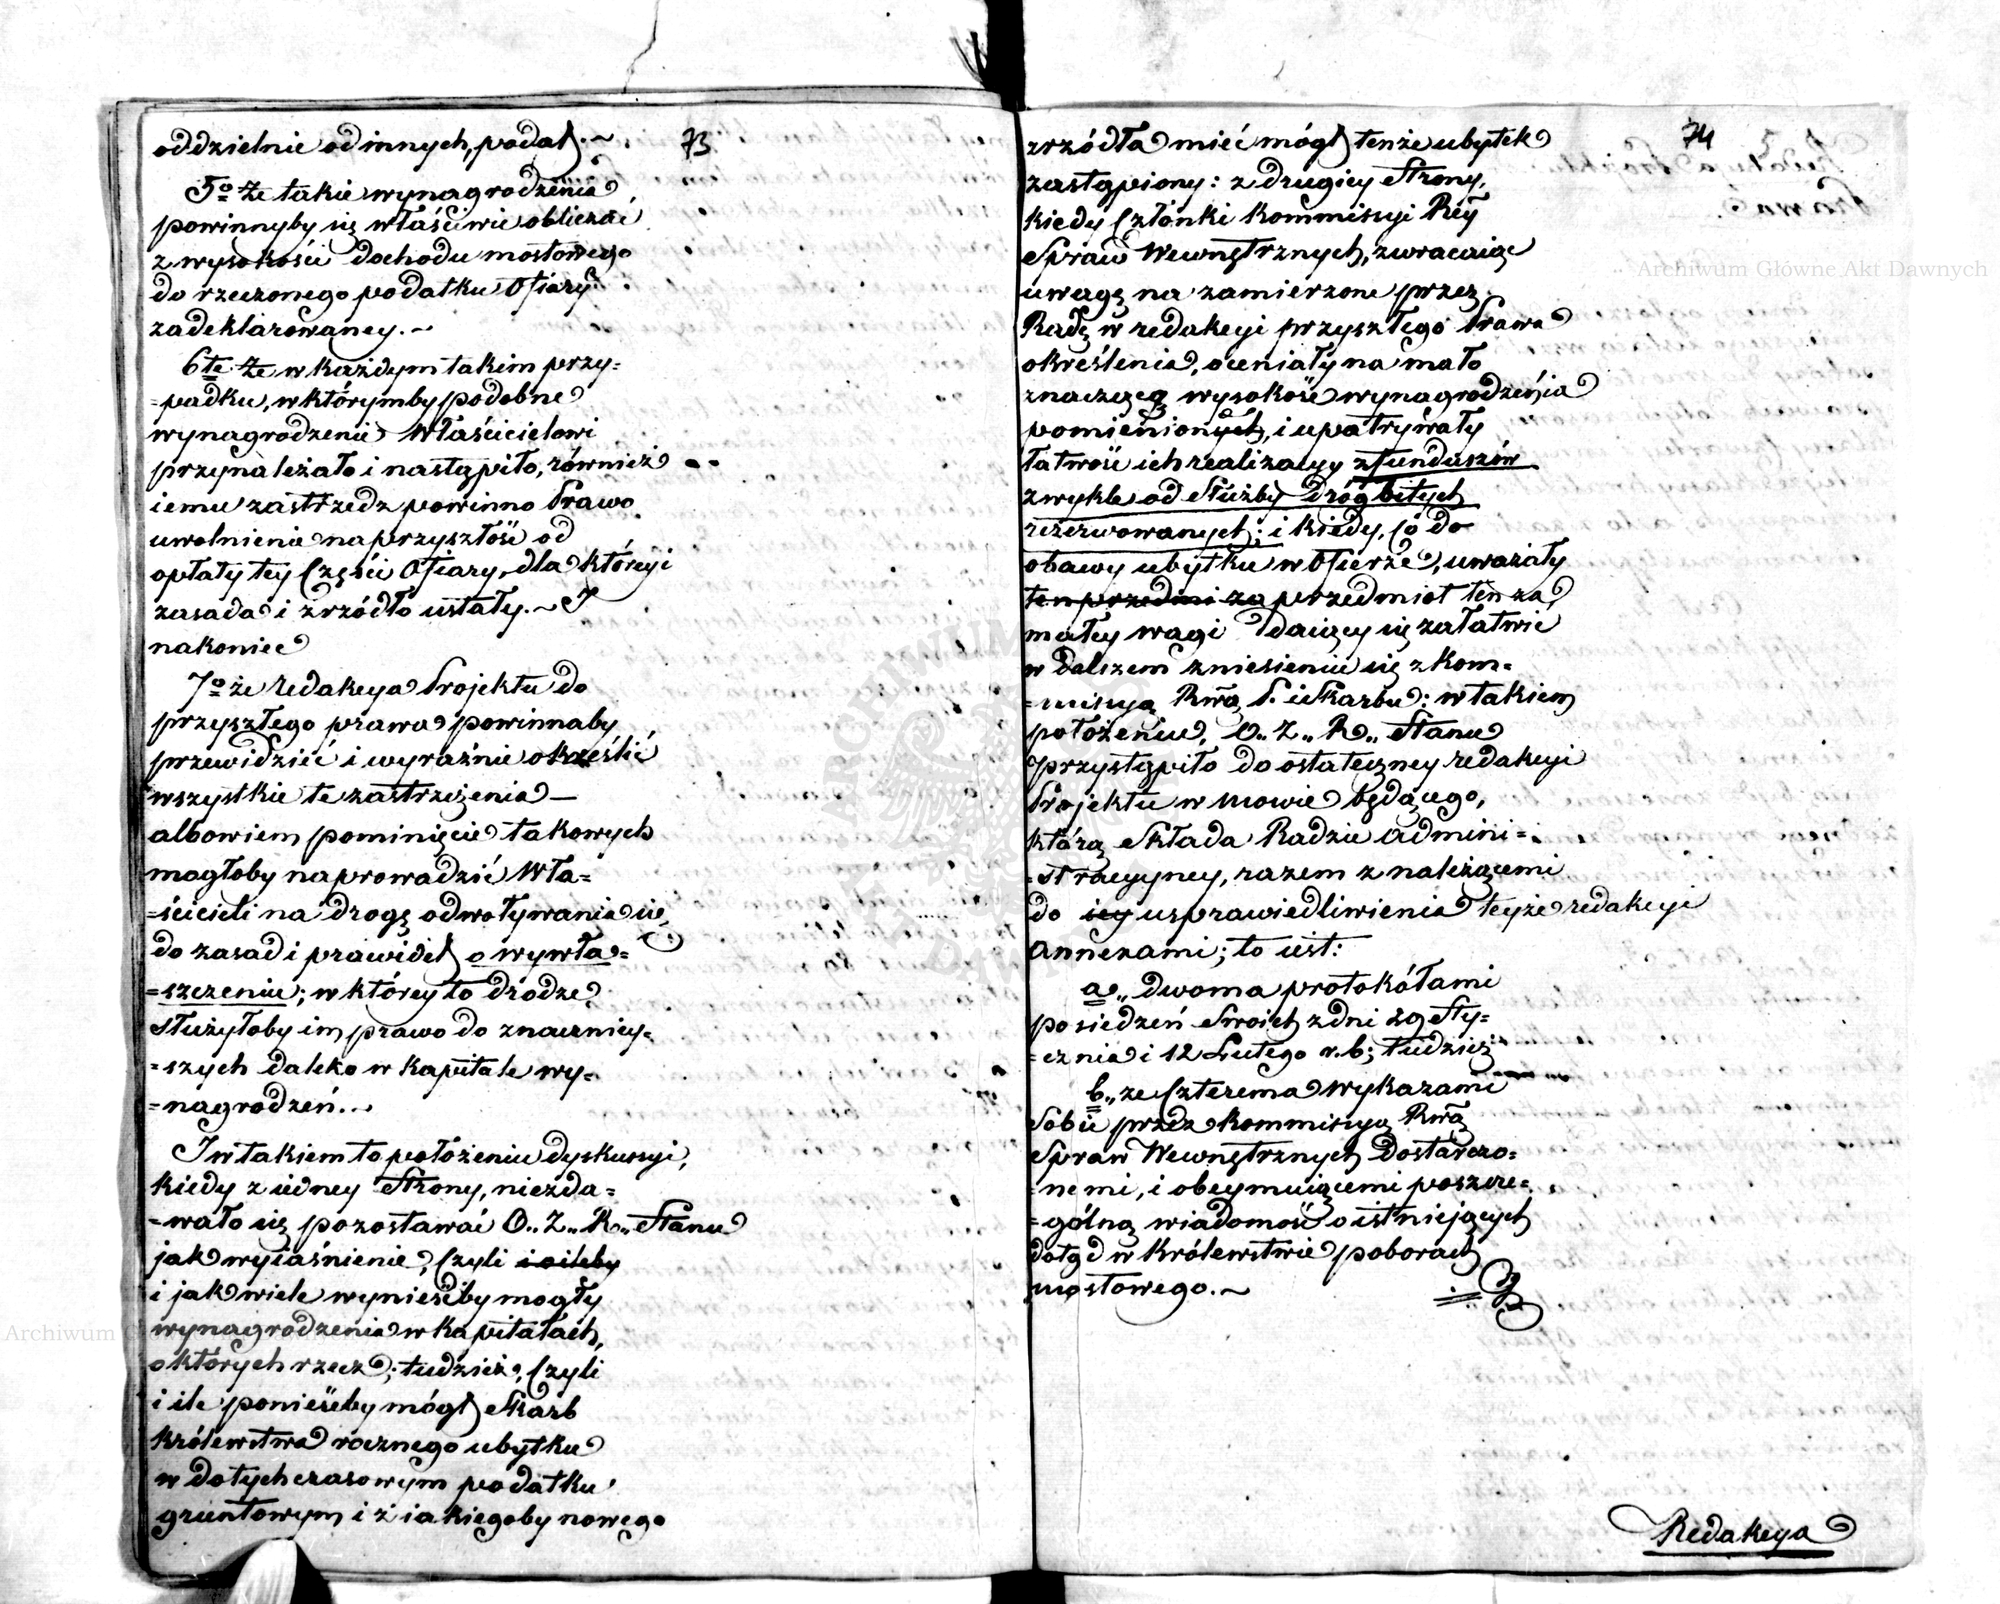 73
oddzielnie od innych, podał. ~
5o Że takie wynagrodzenia
powinnyby się właściwie obliczać
z wysokości dochodu mostowego
do rzeczonego podatku Ofiary
zadeklarowaney. ~
6te Że w każdym takim przy=
=padku, w którymby podobne
wynagrodzenie Właścicielowi
przynależało i nastąpiło, również
iemu zastrzedz powinno Prawo
uwolnienie na przyszłość od
opłaty tey Części Ofiary, dla któreyi
zasada i zrzódło ustały. ~ I
nakoniec
7o że redakcya Projektu do
przyszłego prawa powinnaby
przewidzieć i wyraźnie określić
wszystkie te zastrzeżenia —
albowiem pominięcie takowych
mogłoby naprowadzić Wła=
=ścicieli na drogę odwoływania się
do zasad i prawideł o wywła=
=szczeniu; w którey to drodze
służyłoby im prawo do znaczniey=
=szych daleko w Kapitale wy=
=nagrodzeń. ~
I w takiem to położeniu dyskussyi,
kiedy z iedney Strony, niezda=
=wało się pozostawać O„ Z„ R„ Stanu
jak wyiaśnienie, Czyli i ileby
i jak wiele wynieśćby mogły
wynagrodzenia w kapitałach,
o których rzecz; tudzież, Czyli
i ile ponieśćby mógł Skarb
Królewstwa rocznego ubytku
w dotychczasowym podatku
gruntowym i z iakiegoby nowego
74
zrzódła mieć mógł tenże ubytek
zastąpiony: z drugiey Strony,
kiedy Członki Kommissyi Rźy
Spraw Wewnętrznych, zwracaiąc
uwagę na zamierzone przez
Radę w redakcyi przyszłego Prawa
określenia, oceniały na mało
znaczącą wysokość wynagrodzenia
pomienionych, i upatrywały
łatwość ich realizacyi z funduszów
zwykle od Służby Dróg bitych
rezerwowanych: i kiedy, Co do
obawy ubytku w Ofierze, uważały
ten przedmi za przedmiot ten za
małey wagi i daiący się załatwić
w dalszem zniesieniu się z Kom=
=missyą Rwą P. i Skarbu: w takiem
położeniu, O„ Z„ R„ Stanu
przystąpiło do ostateczney redakcyi
Projektu w mowie będącego,
którą Składa Radzie Admini=
=stracyyney, razem z należącemi
do iey usprawiedliwienia teyże redakcyi
annexami; to iest:
a„ dwoma protokółami
posiedzeń Swoich z dni 29 Sty=
=cznia i 12 Lutego r. b; tudzież
b„ ze Czterema wykazami
Sobie przez Kommissyą Rwą
Spraw Wewnętrznych Dostarczo=
=nemi, i obeymuiącemi poszcze=
=gólną wiadomość o istniejących
dotąd w Królewstwie poborach
mostowego. ~
Redakcya
Archiwum Główne Akt Dawnych